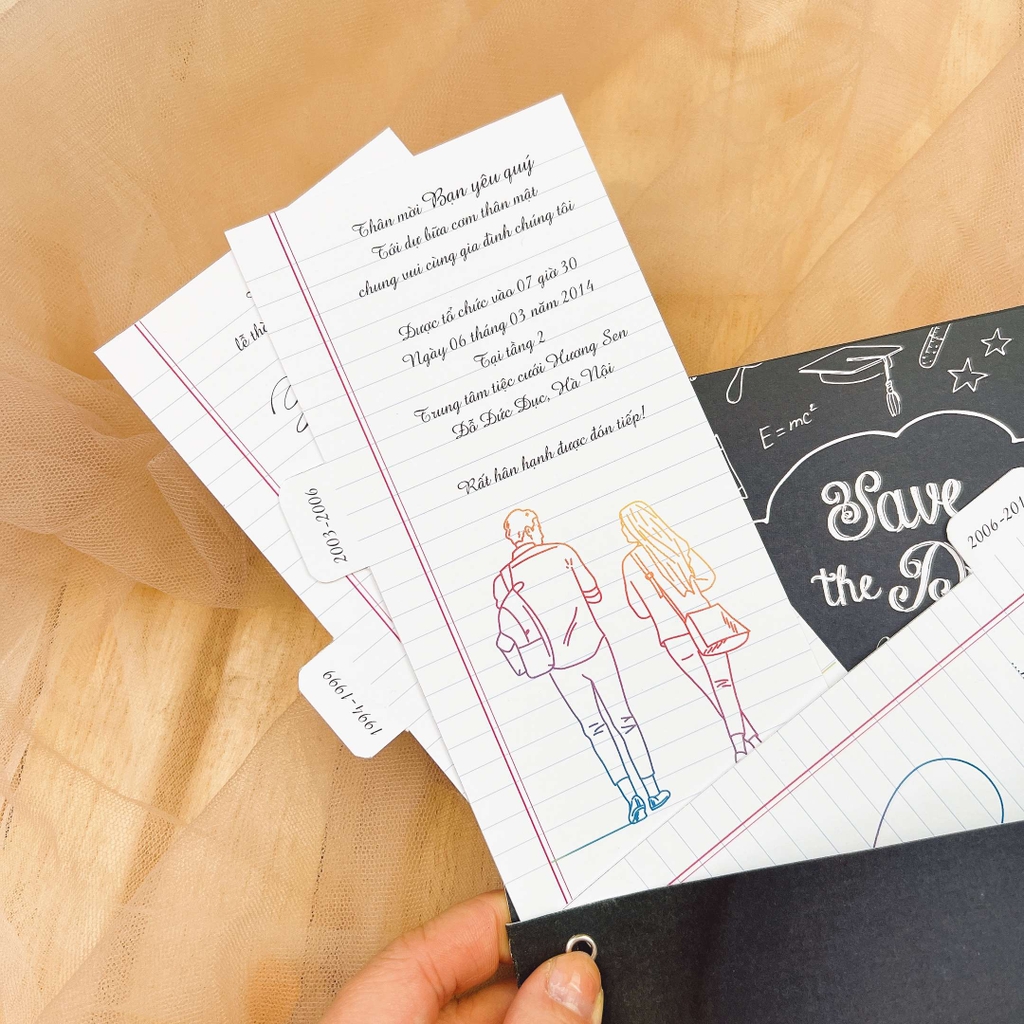 Thân mời Bạn yêu quý
Tới dự bữa cơm thân mật
chung vui cùng gia đình chúng tôi
Được tổ chức vào 07 giờ 30
Ngày 06 tháng 03 năm 2014
Tại tầng 2
Trung tâm tiệc cưới Hương Sen
Đỗ Đức Dục, Hà Nội
Rất hân hạnh được đón tiếp!
lễ
2003-2006
1994-1999
E=mc²
Save
the